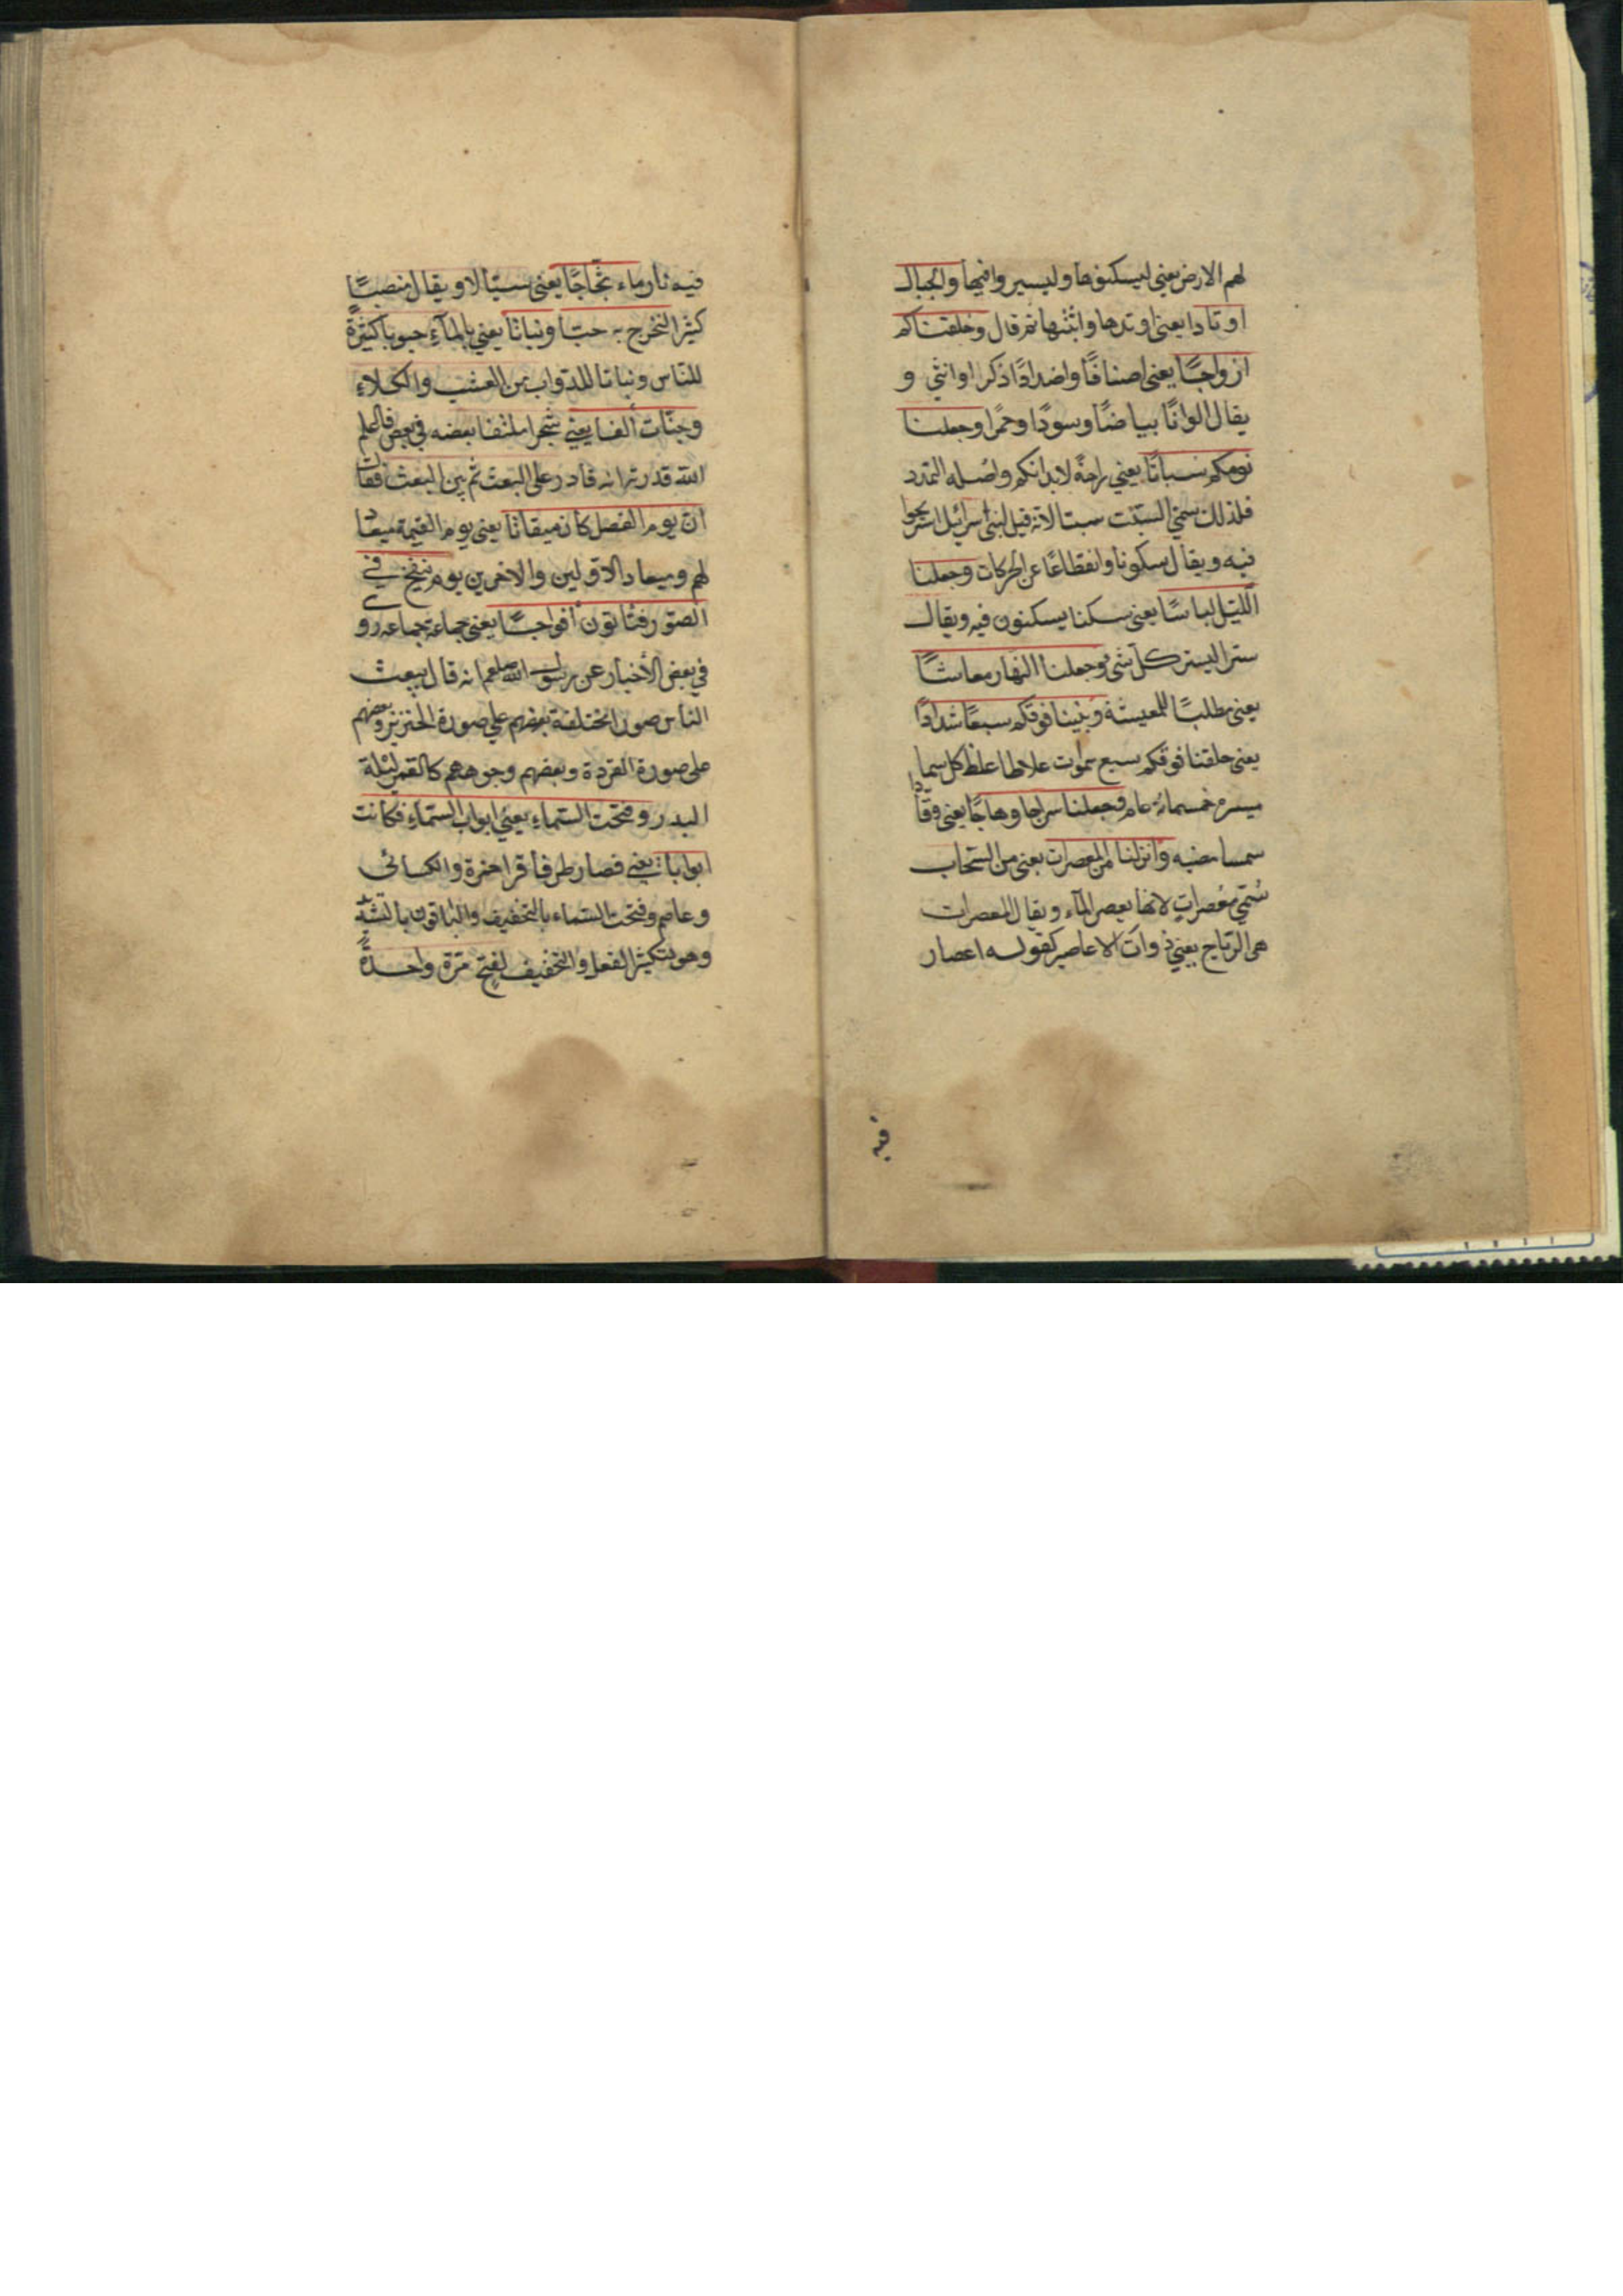 لهم الارض يعني ليسكنوها وليسيروا فيها والجبال
اوتادا يعني اوتدها واثبتها ثم قال وخلقناكم
ازواجًا يعني اصنافًا واضدادًا ذكرا وانثي و
يقال الوانًا بياضًا وسودًا وحمرًا وجعلنا
نومكم سباتًا يعني راحةً لابدانكم واصله التمدد
فلذلك سمي السبت سبتا لانه قيل لبني اسرائيل استريحوا
فيه ويقال سكونا وانقطاعًا عن الحركات وجعلنا
الليل لباسًا يعني سكنا يسكنون فيه ويقال
سترا ليستر كل شي وجعلنا النهار معاشًا
يعني مطلبًا للمعيشة وبنينا فوقكم سبعًا شدادًا
يعني خلقنا فوقكم سبع سموت غلاظا غلظ كل سما
ميسرة خمسمائة عام وجعلنا سراجا وهاجًا يعني وقادا
سمسا مضيه وانزلنا من المعصرات يعني من السحاب
سُمّي مُعصراتٍ لانها يعصر الماء ويقال المعصرات
هي الرياح يعني ذوات الاعاصير كقوله اعصار
فيه
فيه نار ماء ثجّاجًا يعني سيّالا ويقال منصبًّا
كثيرا لنخرج به حبّا ونباتا يعني بالماء حبوبا كثيرةً
للنّاس ونباتا للدّواب من العشب والكلاء
وجنّات ألفافا يعني شجرا ملتفا بعضه في بعض فاعلم
الله قدرته انه قادر علي البعث ثم بين البعث فقال
ان يوم الفصل كان ميقاتا يعني يوم القيمة ميقاتا
لهم وميعاد الاوّلين والاخرين يوم ينفخ في
الصّور فتأتون أفواجًا يعني جماعة جماعه روي
في بعض الأخبار عن رسول الله صلعم انه قال يبعث
الناس صورا مختلفة بعضهم علي صورة الخنزير وبعضهم
علي صورة القردة وبعضهم وجوههم كالقمر ليلة
البدر وفتحت السّماءِ يعني ابواب السّماءِ فكانت
ابوابا يعني فصار طرفا قرا حمزة والكسائي
وعاصم وفتحت السّماء بالتخفيف والباقون بالتشديد
وهو لتكثير الفعل والتخفيف لفتح مرّة واحدةً